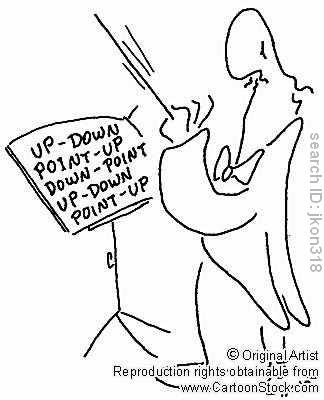 UP-DOWN
POINT-UP
DOWN-POINT
UP-DOWN
POINT-UP
search ID: jkon318
© Original Artist
Reproduction rights obtainable from
www.CartoonStock.com